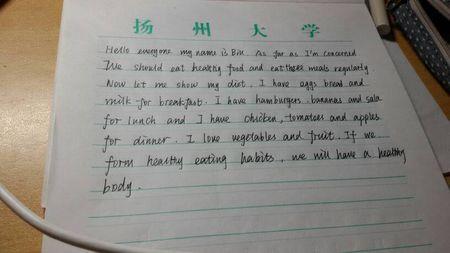 扬州大学
Hello everyone my name is Bin. As far as I'm concerned
We should eat healthy food and eat three meals regularly
Now let me show my diet. I have eggs bread and
milk for breakfast. I have hamburgers bananas and sala
for lunch and I have chicken, tomatoes and apples
for dinner. I love vegetables and fruit. If we
form healthy eating habits, we will have a healthy
body.